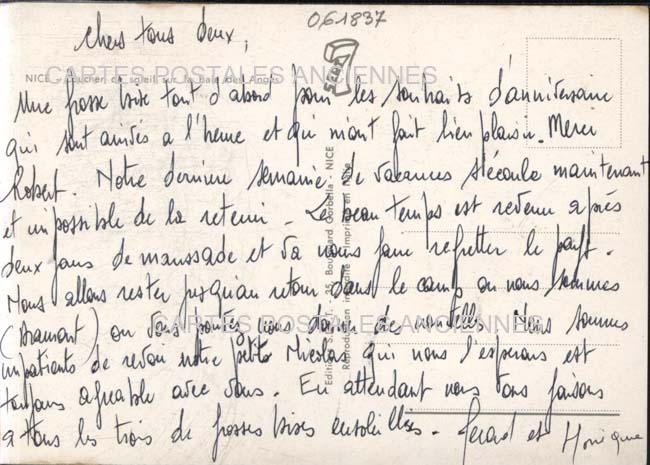 061837
Chers tous deux,
NICE - Coucher de soleil sur la Baie des Anges
CARTES POSTALES ANCIENNES
Une grosse bise tout d'abord pour les souhaits d'anniversaire
qui sont arrivés a l'heure et qui m'ont fait bien plaisir. Merci
Robert. Notre dernière semaine de vacances s'écoule maintenant
et impossible de la retenir - Le beau temps est revenu après
deux jours de maussade et va nous faire regretter le
Nous allons rester jusqu'au retour dans le camp ou nous sommes
(Aramont) ou vous pouvez nous donner de nouvelles Nous sommes
CARTES POSTALES ANCIENNES
impatients de revoir notre petit Nicolas qui nous l'espérons est
toujours agréable avec vous. En attendant nous vous faisons
a tous les trois de grosses bises ensoleillées - Gérard et Monique
Reproduction interdite - Imprimé en